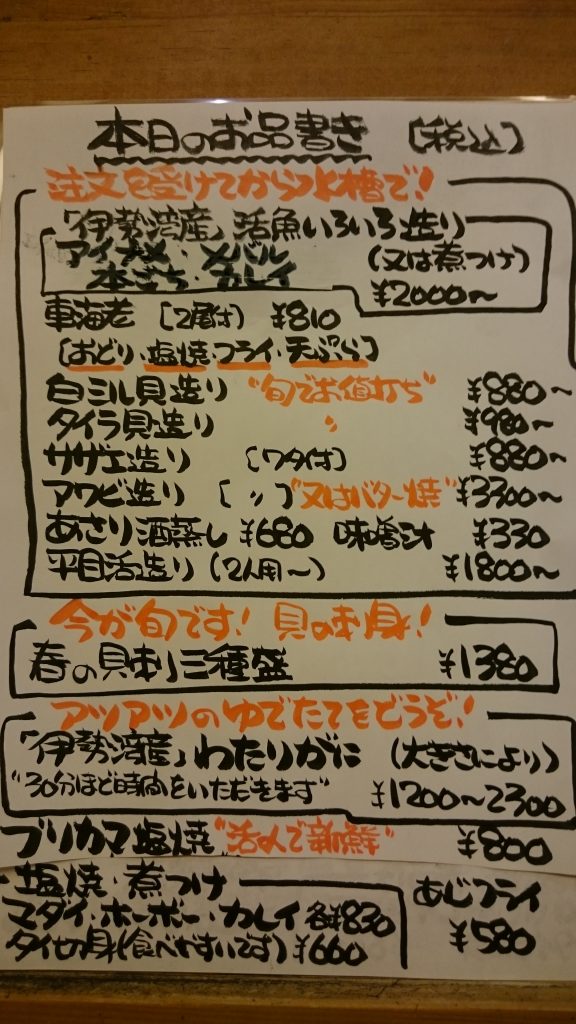 本日のお品書き [税込]
注文を受けてから水槽で!
「伊勢湾産」活魚いろいろ造り
アイナメ・メバル (又は煮つけ)
本ごち・カレイ ¥2000～
車海老 [2尾付] ¥810
[おどり・塩焼・フライ・天ぷら]
白ミル貝造り "旬でお値打ち" ¥880～
タイラ貝造り 〃 ¥980～
サザエ造り [ワタ付] ¥880～
アワビ造り [〃] "又はバター焼" ¥3300～
あさり酒蒸し ¥680 味噌汁 ¥330
平目活造り (2人用～) ¥1800～
今が旬です! 貝の刺身!
春の貝刺し三種盛 ¥1380
アツアツのゆでたてをどうぞ!
「伊勢湾産」わたりがに (大きさにより)
"30分ほど時間をいただきます" ¥1200～2300
ブリカマ塩焼 "活〆で新鮮" ¥800
塩焼・煮つけ
マダイ・ホーボー・カレイ 各¥830
タイ切身(食べやすいです) ¥660
あじフライ
¥580